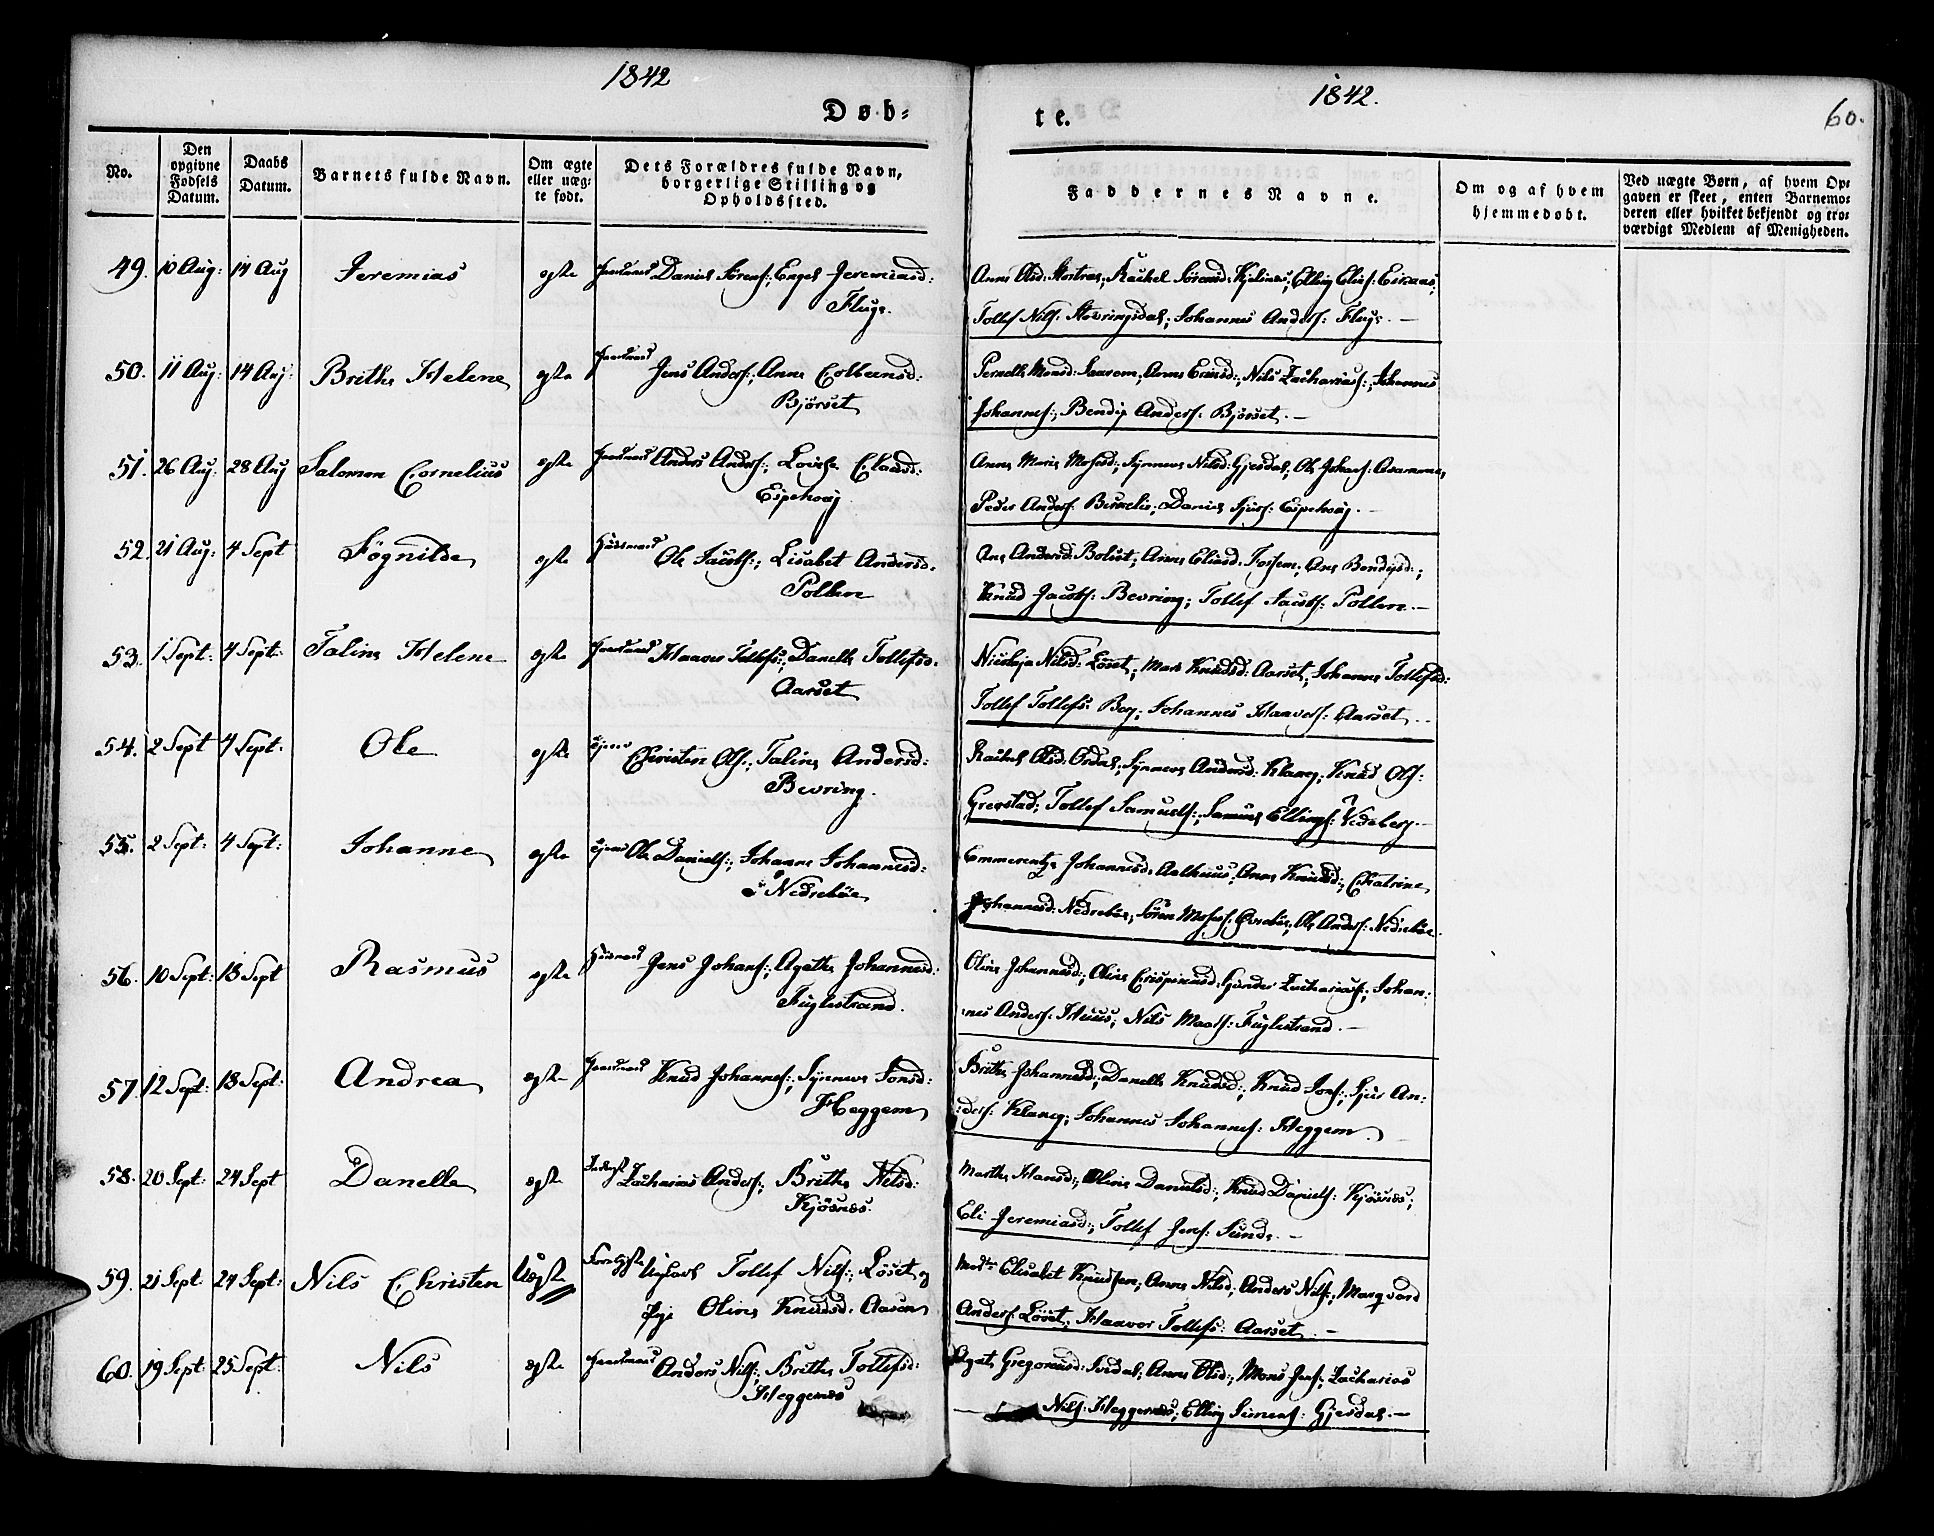 1842
Døb-
1842.
te.
60.
No.
Den opgivne Fødsels Datum.
Daabs Datum.
Barnets fulde Navn.
Om ægte eller uægte født.
Dets Forældres fulde Navn, borgerlige Stilling og Opholdssted.
Faddernes Navne.
Om og af hvem hjemmedøbt.
Ved uægte Børn, af hvem Opgaven er skeet, enten Barnemoderen eller hvilket bekjendt og troværdigt Medlem af Menigheden.
49. 10 Aug: 14 Aug Jeremias egte Daniel Sørens:, Engel Jeremiasd:
Fluge.
Anne Olsd: Rachel Elling Elias:
Tollef Nils: Stovringsdal; Johannes Anders: Fluge.—
50. 11 Aug: 14 Aug: Brithe Helene egte Jens Anders:, Anne Colbensd:
Bjørset
Pernelle Monsd: Anne Nils Zacharias:, Johannes
Johannes:, Bendix Anders: Bjørset.—
51. 26 Aug: 28 Aug Salomon Cornelius egte Anders Anders:, Lovise Claasd:
Espehoug
Anne Marie Mosesd:, Synneve Nilsd: Gjesdal, Ole Johans:
Peder Anders: Birkelie; Daniel Sjurs: Espehoug.—
52. 21 Aug: 4 Sept Søgnilde egte Huusmand Ole Jacobs:, Lisabet Andersd:
Pollen
Ane Andersd: Bolset, Anne Eliasd: Ane Bendixd:;
Knud Jacobs: Bevring; Tollef Jacobs: Pollen.—
53. 1 Sept: 4 Sept: Taline Helene egte Haaver Tollefs:, Danelle Tollefsd:
Aarset
Nicolaja Nilsd: Løset, Mari Knudsd: Aarset, Johanne Tollefsd:
Tollef Tollefs: Berg; Johannes Haavers: Aarset.
54. 2 Sept 4 Sept: Ole egte Christen Ols:, Taline Andersd:
Bevring.
Rachel Olsd: Ordal, Synneve Andersd: Klaueg; Knud Ols:
Gregstad; Tollef Samuels:, Samuel Ellings: Vedeberg.—
55. 2 Sept: 4 Sept: Johanne egte Ole Daniels:, Johanne Johannesd:
Nedrebøe
Emmerentze Johannesd: Aalhuus, Anne Knudsd:, Chatrine
Johannesd: Nedrebøe, Søren Moses: Øvrebøe, Ole Anders: Nedrebøe.
56. 10 Sept: 18 Sept Rasmus egte Huusmand Jens Johans:, Agathe Johannesd:
Fuglestrand.
Oline Johannesd:, Oline Crispinusd: Gunder Zacharias:, Johan-
nes Anders: Huus; Nils Mads: Fuglestrand.—
57. 12 Sept: 18 Sept: Andrea egte Knud Johannes:, Synneve Jonsd:
Heggem
Brithe Johannesd:, Danelle Knudsd:, Knud Jons:, Sjur An-
ders: Klaueg; Johannes Johannes: Heggem.
58. 20 Sept: 24 Sept Danelle egte Zacharias Anders:, Brithe Nilsd:
Kjøsnæs.
Marthe Hansd:, Oline Danielsd:, Knud Daniels: Kjøsnæs;
Eli Jeremiasd:, Tollef Jens: Sunde.—
59. 21 Sept: 24 Sept: Nils Christen Uægte Ungkarl Tollef Nils: Løset og
Pige Oline Knudsd: Aasen
Elisabet Knudsen; Anne Nilsd:, Anders Nils:, Marqvard
Anders: Løset; Haavor Tollefs: Aarset.—
60. 19 Sept: 25 Sept: Nils egte Anders Nils:, Brithe Tollefsd:
Heggenæs
Agate Gregoriusd: Svidal; Anne Olsd:, Mons Jens:, Zacharias
Nils: Heggenæs; Elling Simens: Gjesdal.—